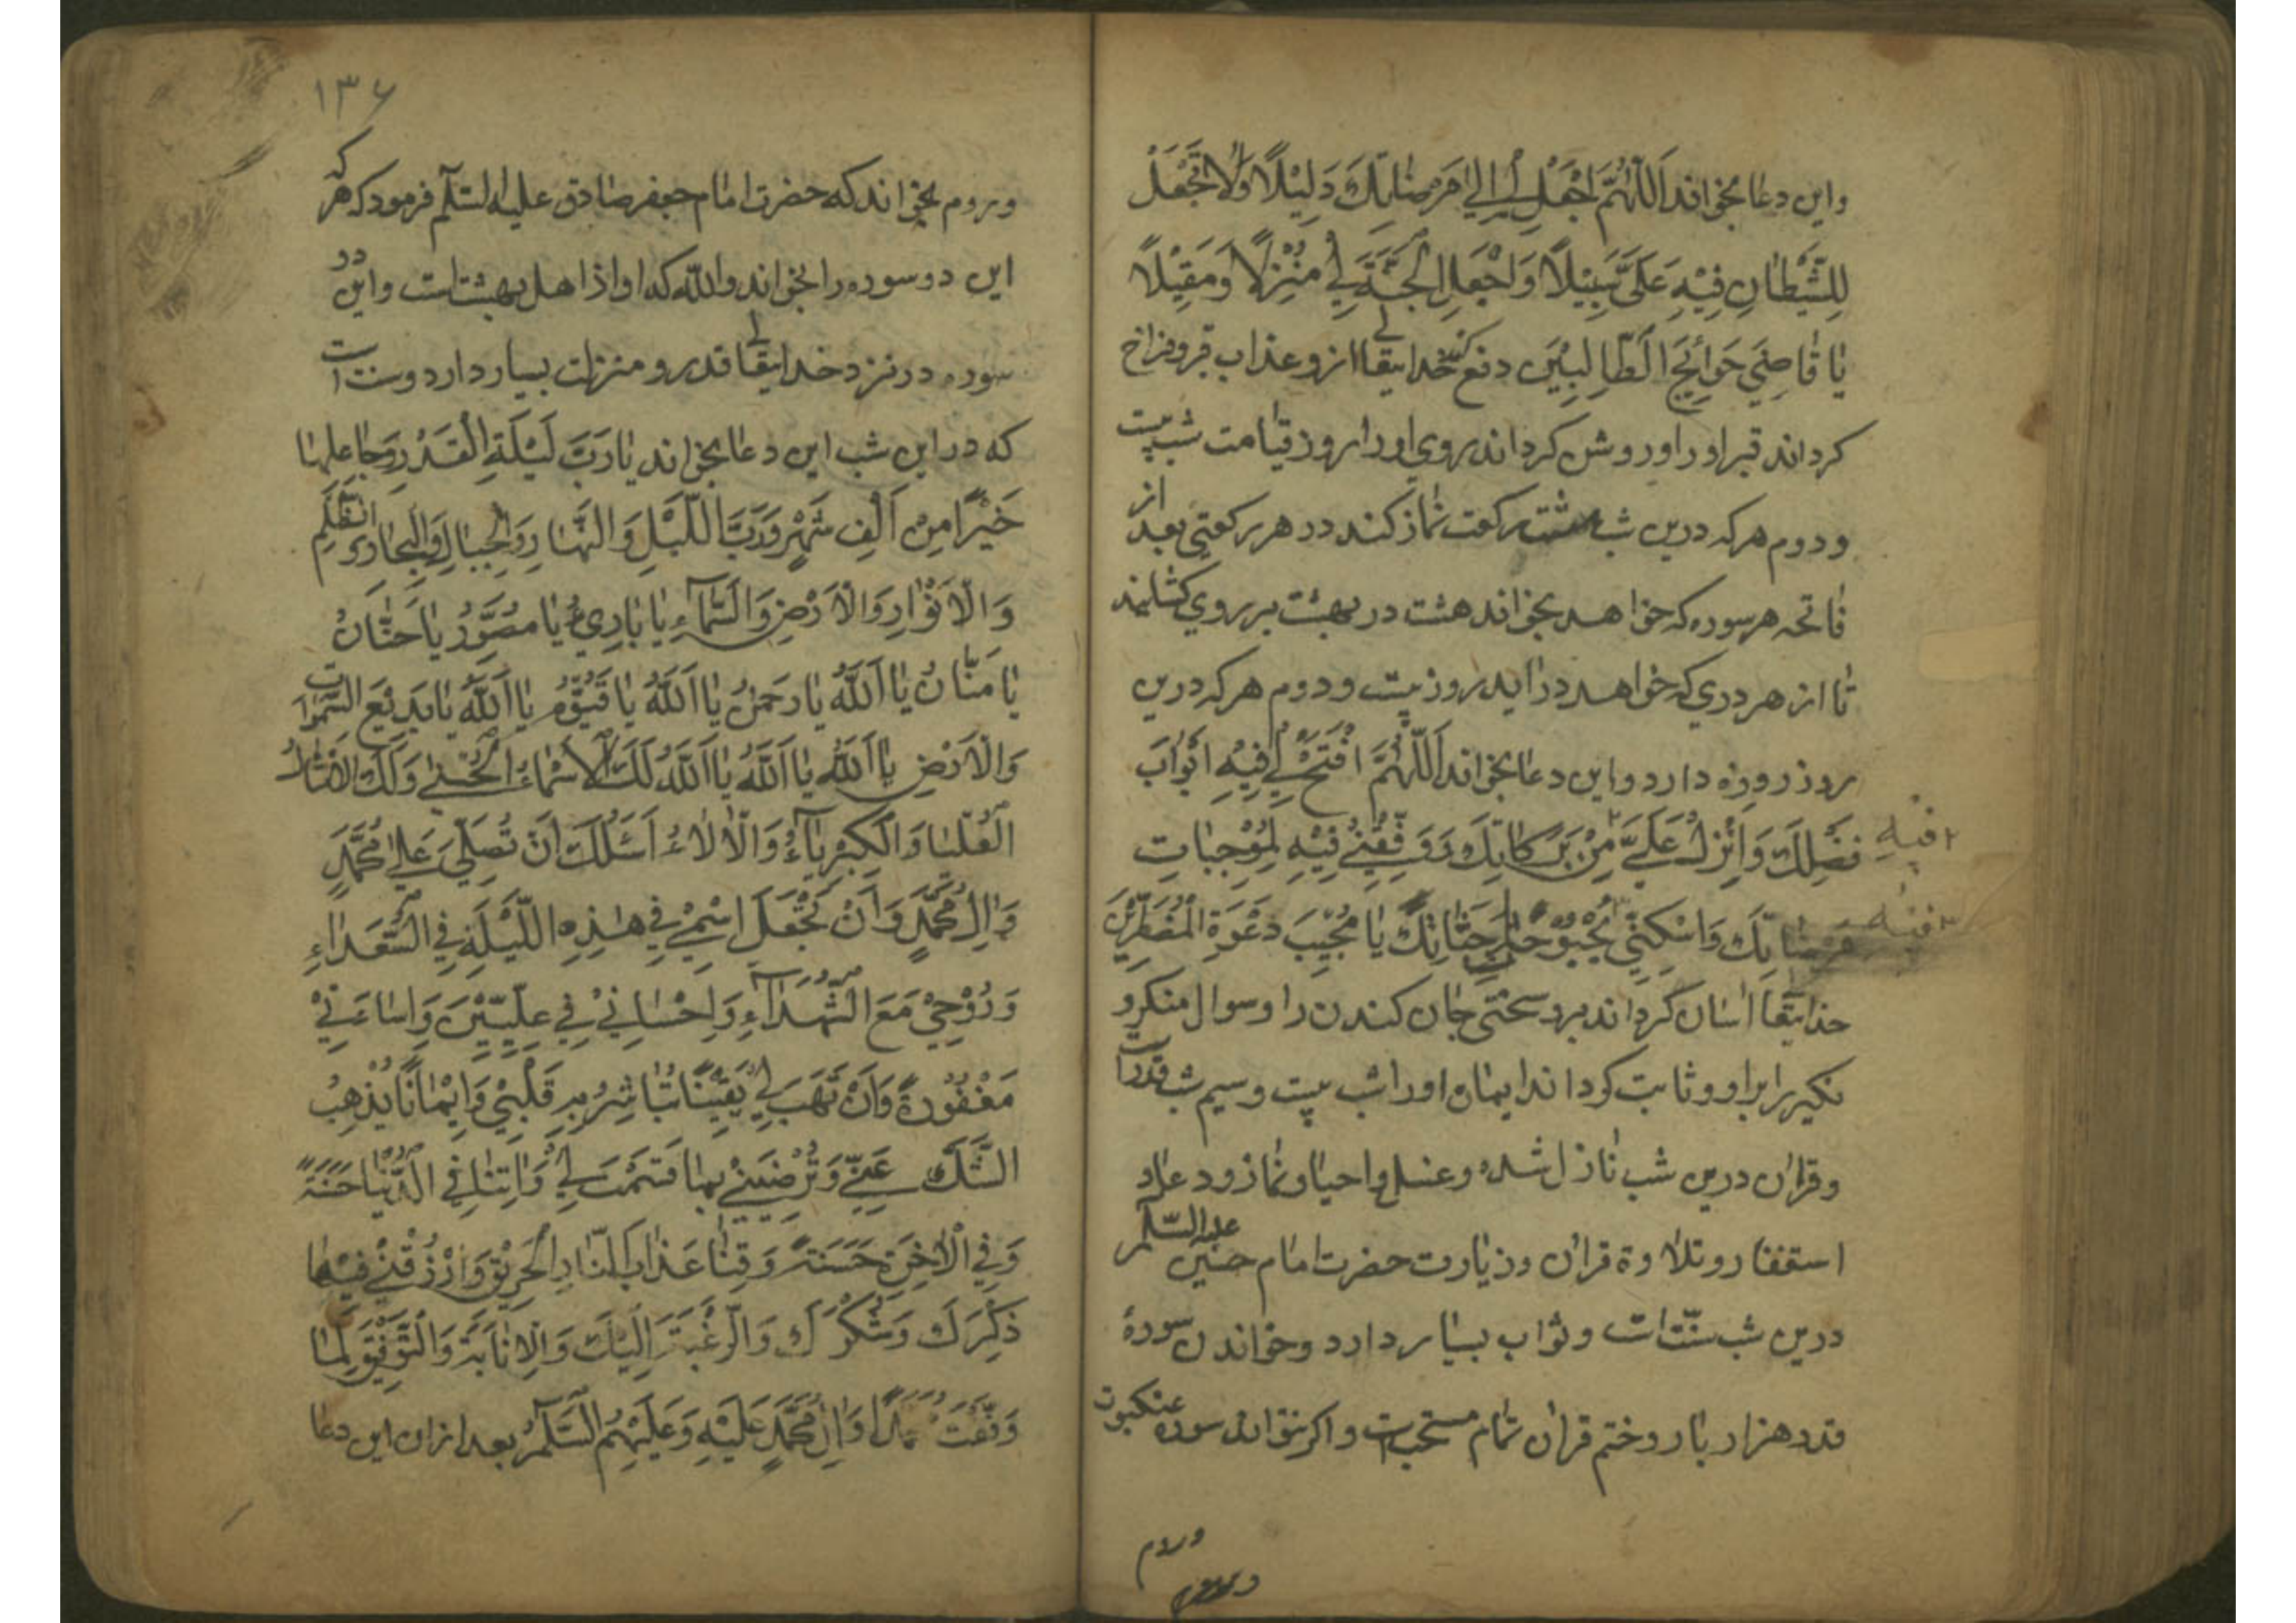 واین دعا بخواند اَللّٰهُمَّ اجْعَلْ لِي اِلٰي مَرضٰاتِكَ دَلِيْلًا وَلٰا تَجْعَلْ
لِلشَّيْطٰانِ فِيْهِ عَلَيَّ سَبِيْلًا وَاجْعَلِ الْجَنَّةَ لِي مَنْزِلًا وَمَقِيْلًا
يٰا قٰاضِيَ حَوٰائِجِ الطّٰالِبِيْنَ دفع کند خدایتعالی ازو عذاب قبر و فراخ
کرداند قبر او را و روشن کرداند روی او را روز قیامت شب بیست
و دوم هرکه درین شب هشت رکعت نماز کند در هر رکعتی بعد از
فاتحه هر سوره که خواهد بخواند هشت در بهشت بر روی کشایند
تا از هر دری که خواهد در اید روز بیست و دوم هرکه درین
روز روزه دارد و این دعا بخواند اَللّٰهُمَّ افْتَحْ لِي فِيْهِ اَبْوٰابَ
فَضْلِكَ وَاَنْزِلْ عَلَيَّ مِنْ بَرَكٰاتِكَ وَوَفِّقْنِي فِيْهِ لِمُوْجِبٰاتِ
فيه
مَرضٰاتِكَ وَاسْكِنِّي بُحْبُوْحٰاتِ جَنّٰاتِكَ يٰا مُجِيْبَ دَعْوَةِ الْمُضْطَرِّيْنَ
فيه
خدایتعالی اسان کرداند برو سختی جان کندن را و سوال منکر و
نکیر را براو و ثابت کرداند ایمان او را شب بیست و سیم شب قدر است
و قران درین شب نازل شده و غسل و احیا و نماز و دعا و
استغفار و تلاوة قران و زیارت حضرت امام حسین علیه السلم
درین شب سنّت است و ثواب بسیار دارد و خواندن سورهٔ
قدر هزار بار و ختم قران تمام مستحب است و اکر نتواند سوره عنکبوت
وروم
۱۳۶
و روم بخواند که حضرت امام جعفر صادق علیه السلم فرمود که هر که
این دو سوره را بخواند والله که او از اهل بهشت است و این دو
سوره در نزد خدایتعالی قدر و منزلت بسیار دارد و سنت است
که در این شب این دعا بخواند يٰا رَبَّ لَيْلَةِ الْقَدْرِ وَجٰاعِلِهٰا
خَيْرًا مِنْ اَلْفِ شَهْرٍ وَرَبَّ اللَّيْلِ وَالنَّهٰارِ وَالْجِبٰالِ وَالْبِحٰارِ وَالظُّلَمِ
وَالْاَنْوٰارِ وَالْاَرْضِ وَالسَّمٰآءِ يٰا بٰارِيُ يٰا مُصَوِّرُ يٰا حَنّٰانُ
يٰا مَنّٰانُ يٰا اَللّٰهُ يٰا رَحمٰنُ يٰا اَللّٰهُ يٰا قَيُّوْمُ يٰا اَللّٰهُ يٰا بَدِيْعَ السَّمٰوٰاتِ
وَالْاَرْضِ يٰا اَللّٰهُ يٰا اَللّٰهُ يٰا اَللّٰهُ لَكَ الْاَسْمٰاءُ الْحُسْنٰي وَلَكَ الْاَمْثٰالُ
الْعُلْيٰا وَالْكِبْرِيٰآءُ وَالْاٰلٰاءُ اَسْئَلُكَ اَنْ تُصَلِّيَ عَلٰي مُحَمَّدٍ
وَاٰلِ مُحَمَّدٍ وَاَنْ تَجْعَلَ اسْمِيْ فِي هٰذِهِ اللَّيْلَةِ فِي السُّعَدٰاءِ
وَرُوْحِيْ مَعَ الشُّهَدٰآءِ وَاِحْسٰانِيْ فِي عِلِّيِّيْنَ وَاِسٰاءَتِيْ
مَغْفُوْرَةً وَاَنْ تَهَبَ لِي يَقِيْنًا تُبٰاشِرُ بِهِ قَلْبِيْ وَاِيْمٰانًا يُذْهِبُ
الشَّكَّ عَنِّي وَتُرْضِيَنِيْ بِمٰا قَسَمْتَ لِي وَاٰتِنٰا فِي الدُّنْيٰا حَسَنَةً
وَفِي الْاٰخِرَةِ حَسَنَةً وَقِنٰا عَذٰابَ النّٰارِ الْحَرِيْقِ وَارْزُقْنِيْ فِيْهٰا
ذِكْرَكَ وَشُكْرَكَ وَالرَّغْبَةَ اِلَيْكَ وَالْاِنٰابَةَ وَالتَّوْفِيْقَ لِمٰا
وَفَّقْتَ مُحَمَّدًا وَاٰلَ مُحَمَّدٍ عَلَيْهِ وَعَلَيْهِمُ السَّلٰمُ بعد ازان این دعا